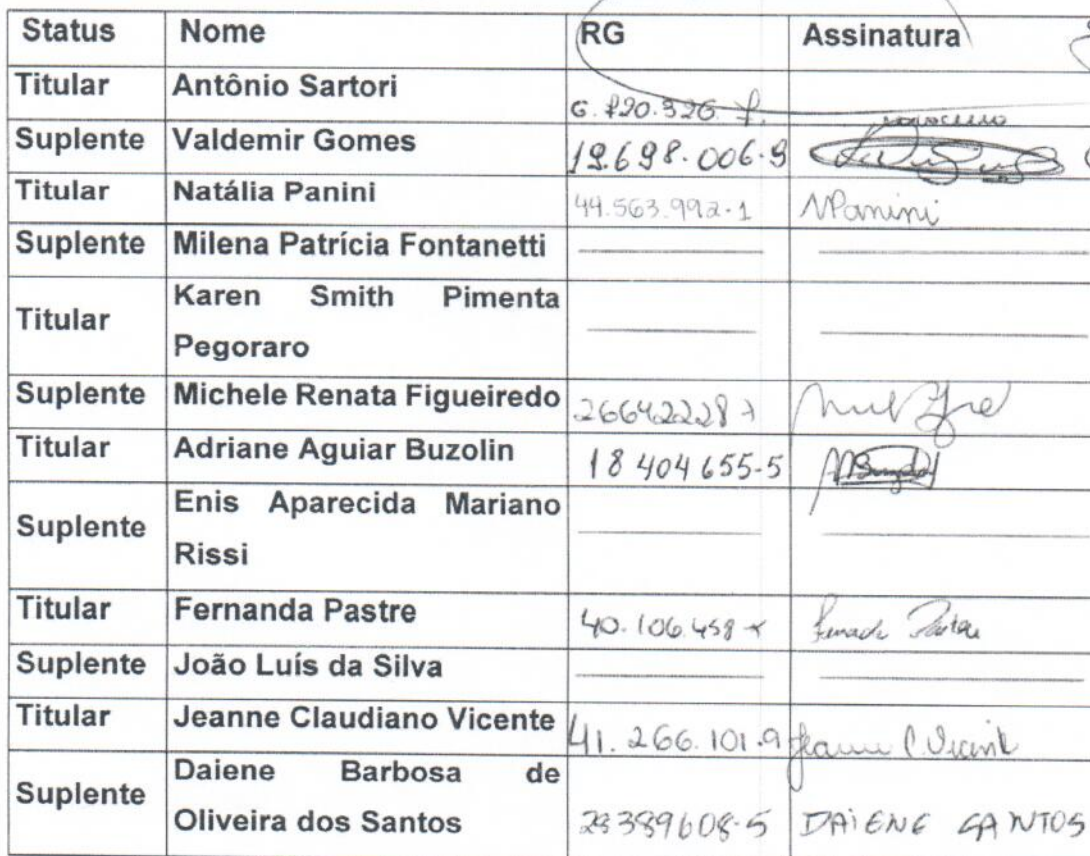 Status Nome RG Assinatura
Titular Antônio Sartori
Suplente Valdemir Gomes 19.698.006-9
Titular Natália Panini 44.563.992-1 NPanini
Suplente Milena Patrícia Fontanetti
Titular Karen Smith Pimenta
Pegoraro
Suplente Michele Renata Figueiredo 26642228
Titular Adriane Aguiar Buzolin 18 404 655-5
Suplente Enis Aparecida Mariano
Rissi
Titular Fernanda Pastre 40.106.458-x
Suplente João Luís da Silva
Titular Jeanne Claudiano Vicente 41.266.101.9
Suplente Daiene Barbosa de
Oliveira dos Santos 29389608-5 DAIENE SANTOS